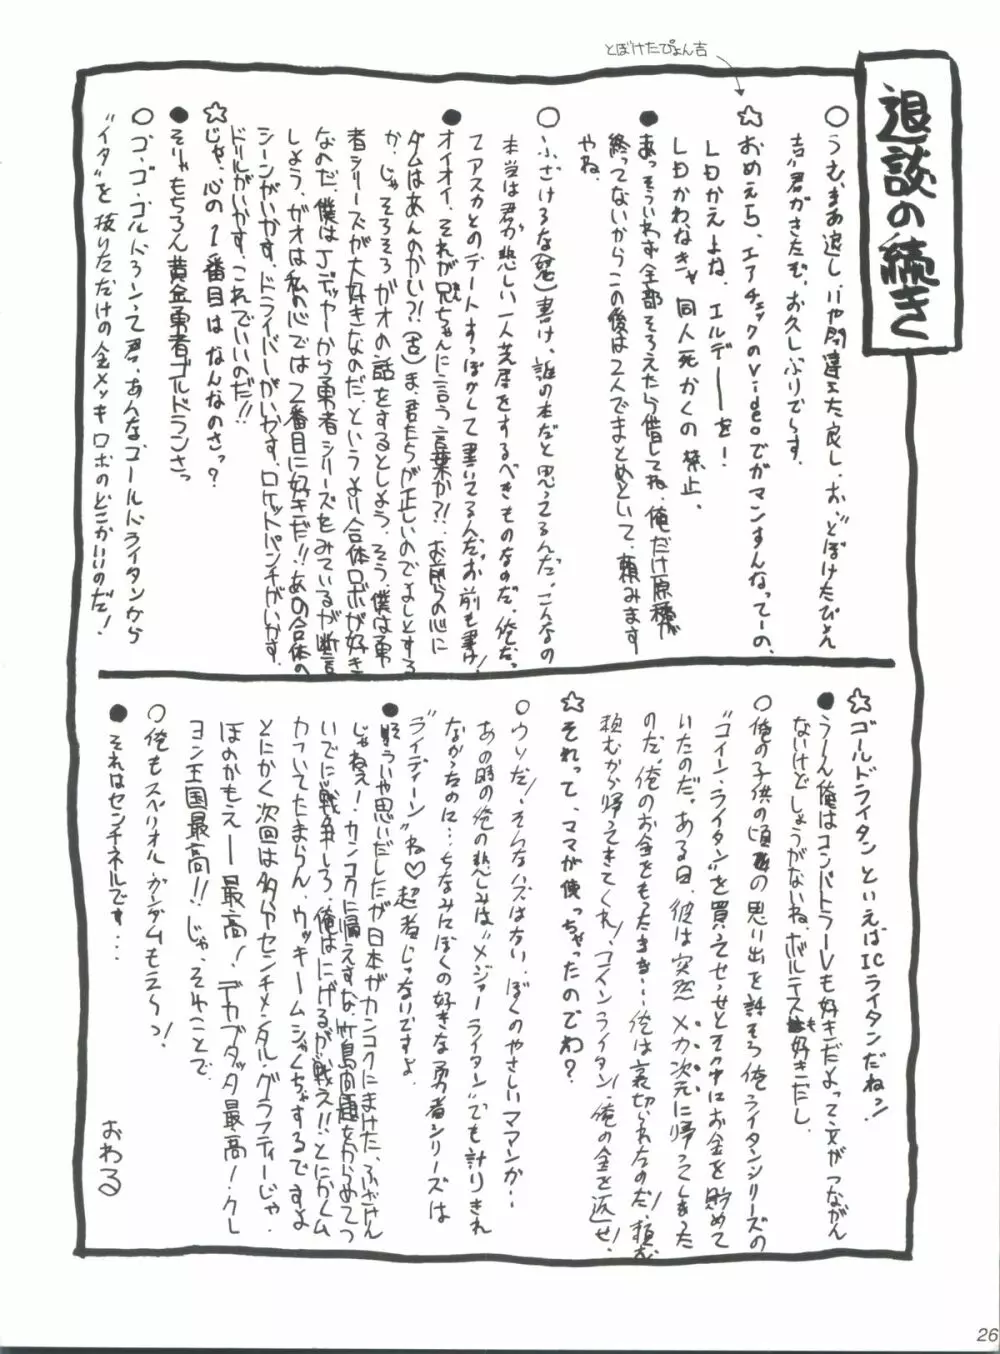 退談の続き
とぼけたぴょん吉
○うむ、まあ退し、いや間違えた、良し、お、“どぼけたぴょん
吉”君がきたむ。お久しぶりでらす。
☆おめえら、エアチェックのVideoでガマンすんなってーの、
LDかえよね、エルデーーを!
LDかわなきゃ同人死かくの禁止。
●あっそういわず全部そろえたら借してね。俺だけ原稿が
終ってないからこの後は2人でまとめといて、頼みます
やね。
○ふざけるな(怒)書け、誰の本だと思ってるんだ。こんなの
本当は君が悲しい一人芝居をするべきものなのだ。俺だっ
てアスカとのデートすっぽかして書いてるんだ。お前も書け!
●オイオイ、それが兄ちゃんに言う言葉か?!お前らの心に
ダムはあんのかい?!(古)ま、君たちが正しいのでよしとする
か。じゃ、そろそろガオの話をするとしよう。そう、僕は勇
者シリーズが大好きなのだ。というより合体ロボが好き
なのだ。僕はJデッカーから勇者シリーズをみているが断言
しよう。ガオは私の心では2番目に好きだ!!あの合体の
シーンがいかす、ドライバーがいかす、ロケットパンチがいかす、
ドリルがいかす、これでいいのだ!!
☆じゃ、心の1番目はなんなのさっ?
●そりゃもちろん黄金勇者ゴルドランさっ
○ゴ・ゴ・ゴルドランって君、あんな、ゴールドライタンから
“イタ”を抜いただけの金メッキロボのどこがいいのだ!
☆ゴールドライタンといえばICライタンだねっ!
●うーん俺はコンバトラーVも好きだよって文がつながん
ないけどしょうがないね、ボルテスも好きだし、
○俺の子供の頃の思い出を話そう俺、ライタンシリーズの
“コイン・ライタン”を買ってせっせとその中にお金を貯めて
いたのだ。ある日、彼は突然メカ次元に帰ってしまった
のだ。俺のお金をもったまま…俺は裏切られたのだ!頼む
頼むから帰ってきてくれ!コインライタン!俺の金を返せ!
☆それって、ママが使っちゃったのでわ?
○ウソだ!そんなハズはない、ぼくのやさしいママンが…
あの時の俺の悲しみは“メジャーライタン”でも計りきれ
なかったのに…ちなみにぼくの好きな勇者シリーズは
“ライディーン”ね♡超者じゃないですよ。
●そういや思いだしたが日本がカンコクにまけた、ふざけん
じゃねえ!カンコクに帰えすな、竹島問題をからめてつ
いでに戦争しろ、俺はにげるが戦え!!とにかくム
カついてたまらん、ウッキームシャくちゃするですよ
とにかく次回は多分センチメンタル・グラフティーじゃ、
ほのかもえー最高!デカブダッタ最高!クレ
ヨン王国最高!!じゃ、それへことで
○俺もスペリオル・ガンダムもえ〜っ!
●それはセンチネルです…
おわる
26